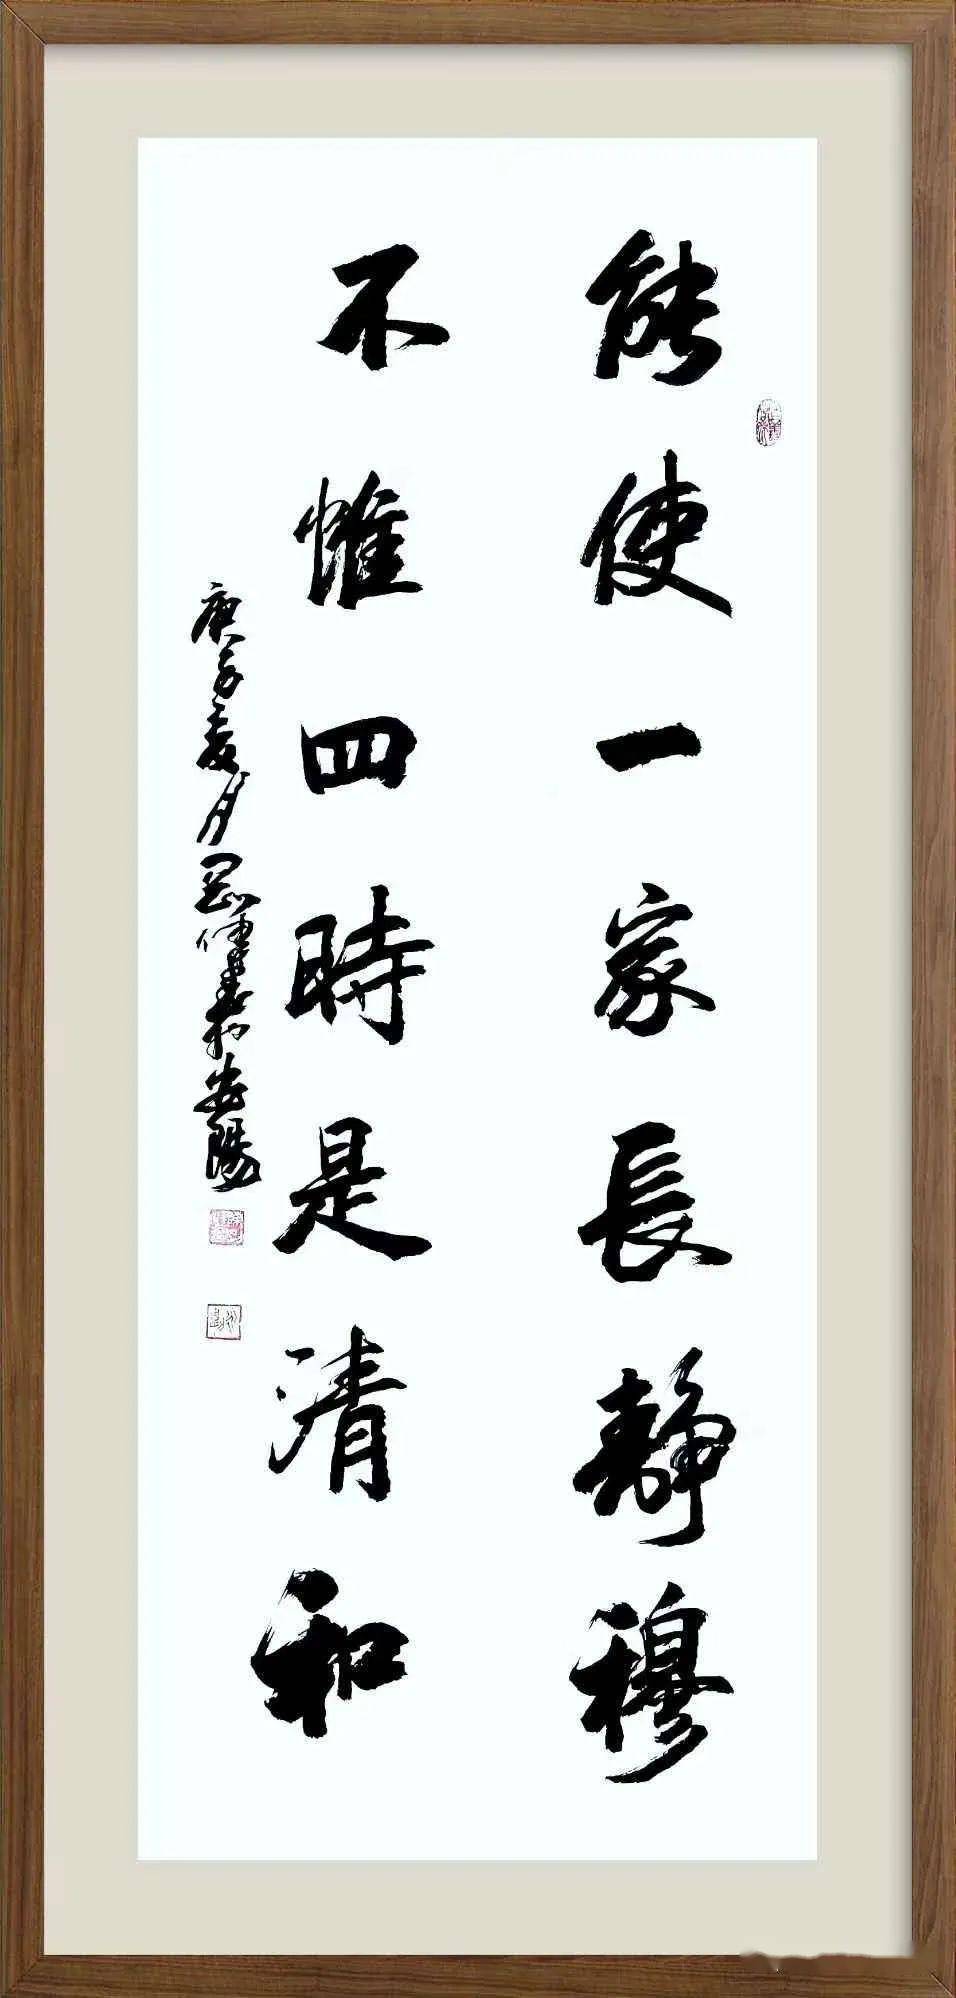 能使一家長靜穆
不惟四時是清和
庚子夏月 書於安陽